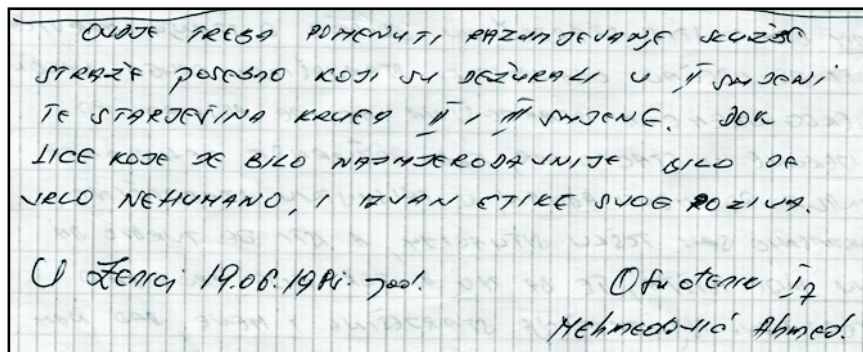 OVDJE TREBA POMENUTI RAZUMJEVANJE SLUŽBE
STRAŽE POSEBNO KOJI SU DEŽURALI U II SMJENI
TE STARJEŠINA KRUGA II I III SMJENE. DOK
LICE KOJE JE BILO NAJMJERODAVNIJE BILO JE
VRLO NEHUMANO, I IZVAN ETIKE SVOG POZIVA.
U Zenici 19.06.198i. god.
Osuđenik I7
Mehmedović Ahmed.